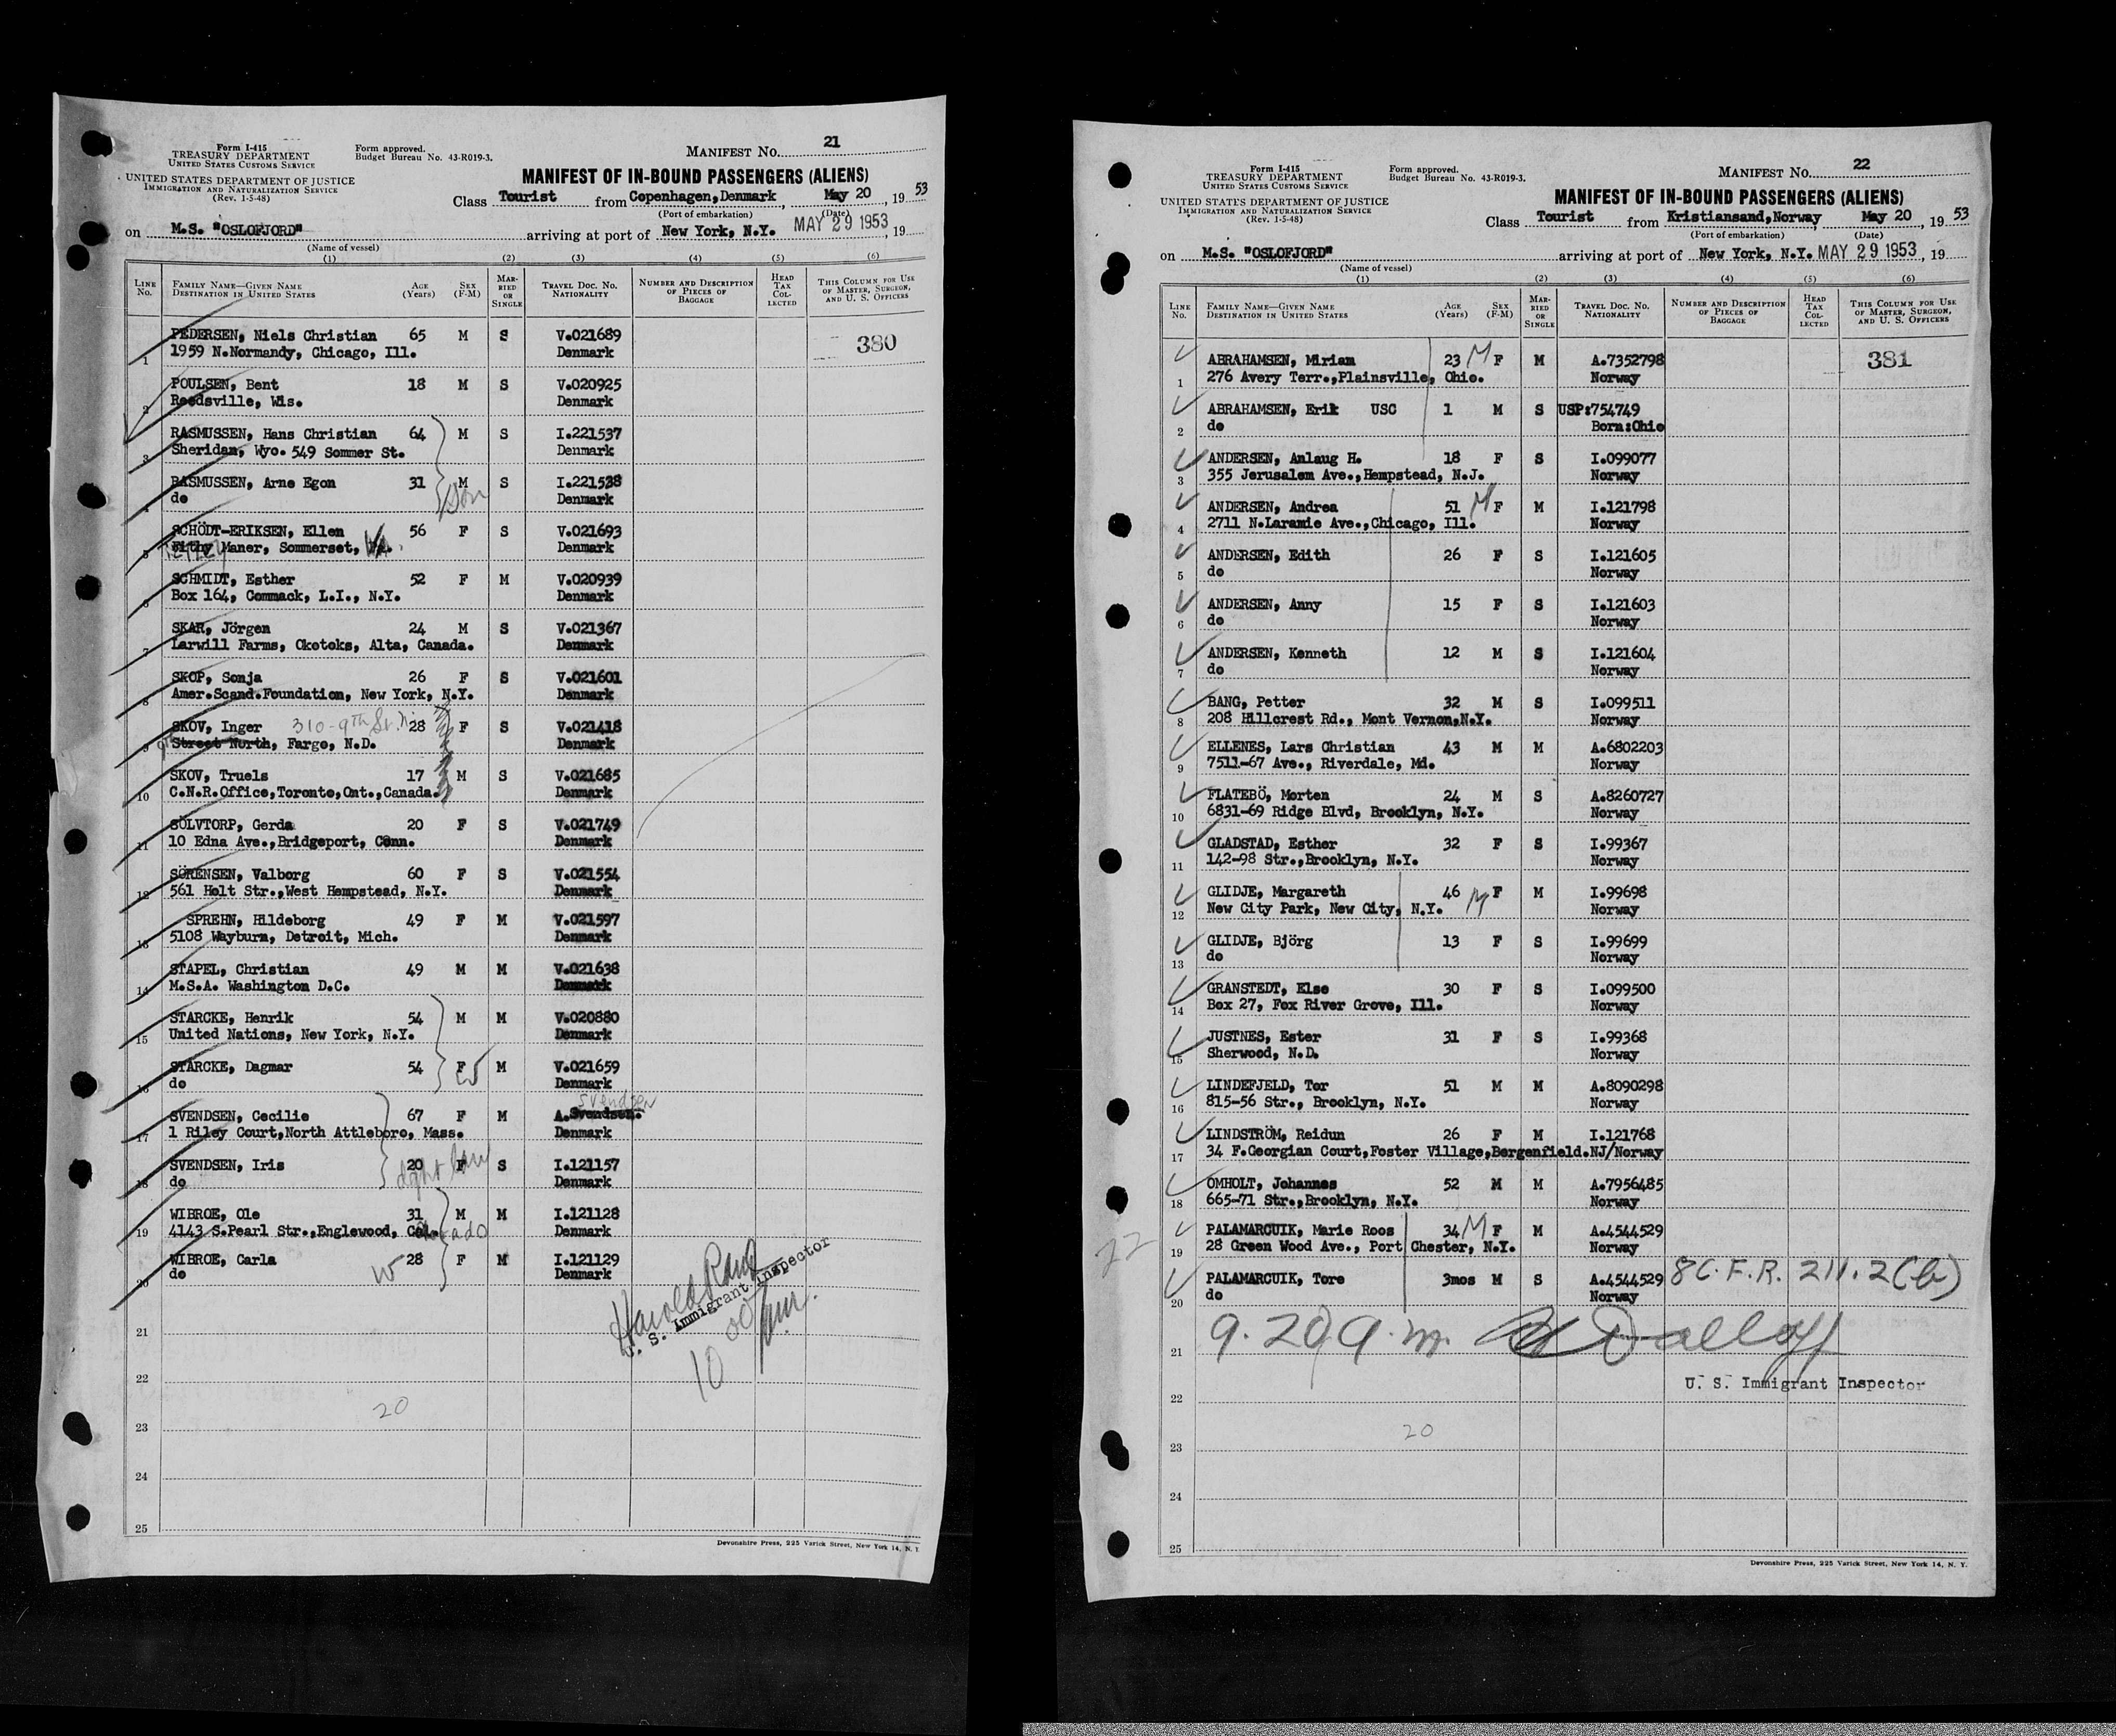 Form I-415
TREASURY DEPARTMENT
UNITED STATES CUSTOMS SERVICE
UNITED STATES DEPARTMENT OF JUSTICE
IMMIGRATION AND NATURALIZATION SERVICE
(Rev. 1-5-48)
Form approved.
Budget Bureau No. 43-R019-3.
MANIFEST No. 21
MANIFEST OF IN-BOUND PASSENGERS (ALIENS)
Class Tourist from Copenhagen,Denmark, May 20, 19 53
(Port of embarkation) (Date)
on M.S. "OSLOFJORD" arriving at port of New York, N.Y. MAY 29 1953, 19
(Name of vessel)
(1) (2) (3) (4) (5) (6)
LINE No. FAMILY NAME—GIVEN NAME DESTINATION IN UNITED STATES AGE (Years) SEX (F-M) MARRIED OR SINGLE TRAVEL DOC. NO. NATIONALITY NUMBER AND DESCRIPTION OF PIECES OF BAGGAGE HEAD TAX COLLECTED THIS COLUMN FOR USE OF MASTER, SURGEON, AND U. S. OFFICERS
PEDERSEN, Niels Christian 65 M S V.021689 380
1 1959 N.Normandy, Chicago, Ill. Denmark
POULSEN, Bent 18 M S V.020925
2 Reedsville, Wis. Denmark
RASMUSSEN, Hans Christian 64 M S I.221537
3 Sheridan, Wyo. 549 Sommer St. Denmark
RASMUSSEN, Arne Egon 31 M S I.221538
4 do Son Denmark
SCHÖDT-ERIKSEN, Ellen 56 F S V.021693
5 Maner, Sommerset, Denmark
SCHMIDT, Esther 52 F M V.020939
6 Box 164, Commack, L.I., N.Y. Denmark
SKAR, Jörgen 24 M S V.021367
7 Larwill Farms, Okotoks, Alta, Canada. Denmark
SKOP, Sonja 26 F S V.021601
8 Amer.Scand.Foundation, New York, N.Y. Denmark
SKOV, Inger 310-9th St. N. 28 F S V.021418
9 Street North, Fargo, N.D. Denmark
SKOV, Truels 17 M S V.021685
10 C.N.R.Office,Toronto,Ont.,Canada. Denmark
SÖLVTORP, Gerda 20 F S V.021749
11 10 Edna Ave.,Bridgeport, Conn. Denmark
SÖRENSEN, Valborg 60 F S V.021554
12 561 Holt Str.,West Hempstead, N.Y. Denmark
SPREHN, Hildeborg 49 F M V.021597
13 5108 Wayburn, Detroit, Mich. Denmark
STAPEL, Christian 49 M M V.021638
14 M.S.A. Washington D.C. Denmark
STARCKE, Henrik 54 M M V.020880
15 United Nations, New York, N.Y. Denmark
STARCKE, Dagmar 54 F W M V.021659
16 do Denmark
Svendsen
SVENDSEN, Cecilie 67 F M A.Svendsen.
17 1 Riley Court,North Attleboro, Mass. Denmark
SVENDSEN, Iris 20 F S I.121157
18 do dght law Denmark
WIBROE, Ole 31 M M I.121128
19 4143 S.Pearl Str.,Englewood, Colorado Denmark
WIBROE, Carla W 28 F M I.121129
20 do Denmark
U. S. Immigrant Inspector
10 00
21
22
20
23
24
25
Devonshire Press, 225 Varick Street, New York 14, N. Y.
Form I-415
TREASURY DEPARTMENT
UNITED STATES CUSTOMS SERVICE
UNITED STATES DEPARTMENT OF JUSTICE
IMMIGRATION AND NATURALIZATION SERVICE
(Rev. 1-5-48)
Form approved.
Budget Bureau No. 43-R019-3.
MANIFEST No. 22
MANIFEST OF IN-BOUND PASSENGERS (ALIENS)
Class Tourist from Kristiansand,Norway May 20, 19 53
(Port of embarkation) (Date)
on M.S. "OSLOFJORD" arriving at port of New York, N.Y. MAY 29 1953, 19
(Name of vessel)
(1) (2) (3) (4) (5) (6)
LINE No. FAMILY NAME—GIVEN NAME DESTINATION IN UNITED STATES AGE (Years) SEX (F-M) MARRIED OR SINGLE TRAVEL DOC. NO. NATIONALITY NUMBER AND DESCRIPTION OF PIECES OF BAGGAGE HEAD TAX COLLECTED THIS COLUMN FOR USE OF MASTER, SURGEON, AND U. S. OFFICERS
ABRAHAMSEN, Miriam 23 M F M A.7352798 381
1 276 Avery Terr.,Plainsville, Ohio. Norway
ABRAHAMSEN, Erik USC 1 M S USP:754749
2 do Born:Ohio
ANDERSEN, Anlaug H. 18 F S I.099077
3 355 Jerusalem Ave.,Hempstead, N.J. Norway
ANDERSEN, Andrea 51 M F M I.121798
4 2711 N.Laramie Ave.,Chicago, Ill. Norway
ANDERSEN, Edith 26 F S I.121605
5 do Norway
ANDERSEN, Anny 15 F S I.121603
6 do Norway
ANDERSEN, Kenneth 12 M S I.121604
7 do Norway
BANG, Petter 32 M S I.099511
8 208 Hillcrest Rd., Mont Vernon,N.Y. Norway
ELLENES, Lars Christian 43 M M A.6802203
9 7511-67 Ave., Riverdale, Md. Norway
FLATEBÖ, Morten 24 M S A.8260727
10 6831-69 Ridge Blvd, Brooklyn, N.Y. Norway
GLADSTAD, Esther 32 F S I.99367
11 142-98 Str.,Brooklyn, N.Y. Norway
GLIDJE, Margareth 46 M F M I.99698
12 New City Park, New City, N.Y. Norway
GLIDJE, Björg 13 F S I.99699
13 do Norway
GRANSTEDT, Else 30 F S I.099500
14 Box 27, Fox River Grove, Ill. Norway
JUSTNES, Ester 31 F S I.99368
15 Sherwood, N.D. Norway
LINDEFJELD, Tor 51 M M A.8090298
16 815-56 Str., Brooklyn, N.Y. Norway
LINDSTRÖM, Reidun 26 F M I.121768
17 34 F.Georgian Court,Foster Village,Bergenfield.NJ/Norway
OMHOLT, Johannes 52 M M A.7956485
18 665-71 Str.,Brooklyn, N.Y. Norway
PALAMARCUIK, Marie Roos 34 M F M A.4544529
22 19 28 Green Wood Ave., Port Chester, N.Y. Norway
PALAMARCUIK, Tore 3mos M S A.4544529 8 C.F.R. 211.2(b)
20 do Norway
9.20 a.m.
21
U. S. Immigrant Inspector
22
20
23
24
25
Devonshire Press, 225 Varick Street, New York 14, N. Y.